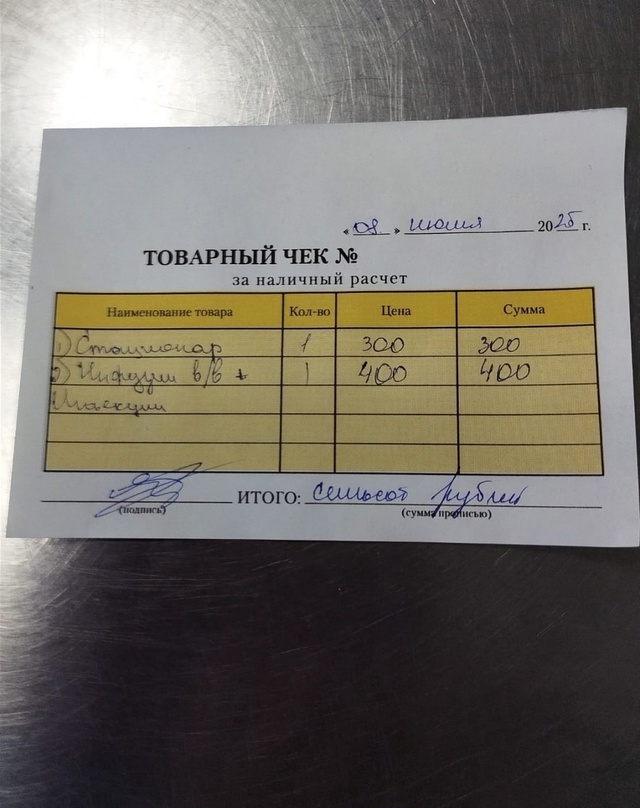 « 08 » июля 2025 г.
ТОВАРНЫЙ ЧЕК №
за наличный расчет
Наименование товара Кол-во Цена Сумма
1) Стационар 1 300 300
2) Инфузии в/в + 1 400 400
Инъекции
ИТОГО: семьсот рублей
(подпись) (сумма прописью)